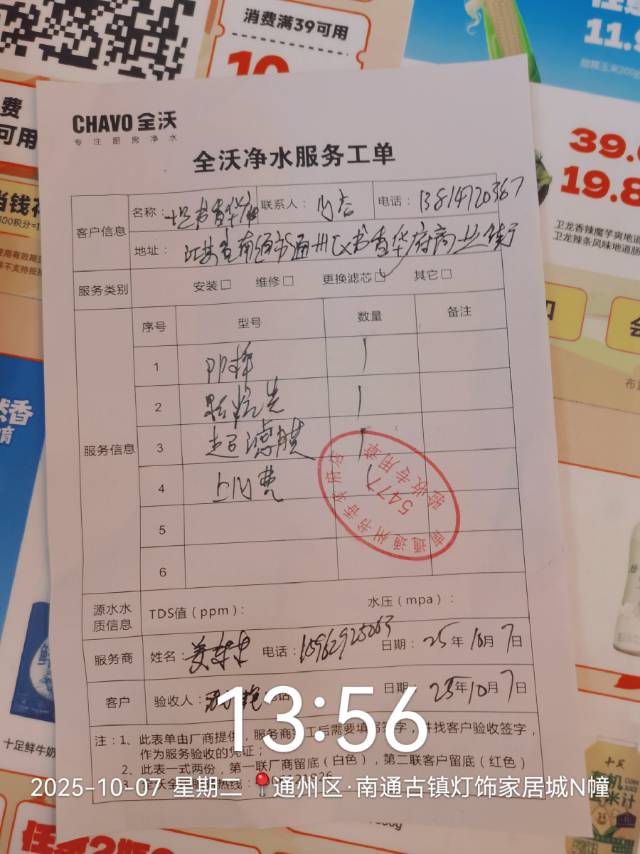 消费满39可用
10
11.9
39.
19.8
卫龙香辣魔芋爽
卫龙辣条风味地道
CHAVO 全沃
专注厨房净水
全沃净水服务工单
客户信息
名称：
联系人：
电话：13814720367
地址：江苏省南通市通州区书香华府商业街
服务类别 安装□ 维修□ 更换滤芯□ 其它□
服务信息
序号 型号 数量 备注
1 PP棉 1
2 1
3 超滤膜 1
4 上门费 1
5
6
5477
验收专用章
源水水质信息 TDS值（ppm）： 水压（mpa）：
服务商 姓名： 电话： 日期：25年10月7日
客户 验收人： 日期：25年10月7日
13:56
注：1、此表单由厂商提供，服务商
作为服务验收的凭证；
2、此表一式两份，第一联厂商留底（白色），第二联客户留底（红色）
2025-10-07 星期二 通州区·南通古镇灯饰家居城N幢
十足鲜牛奶